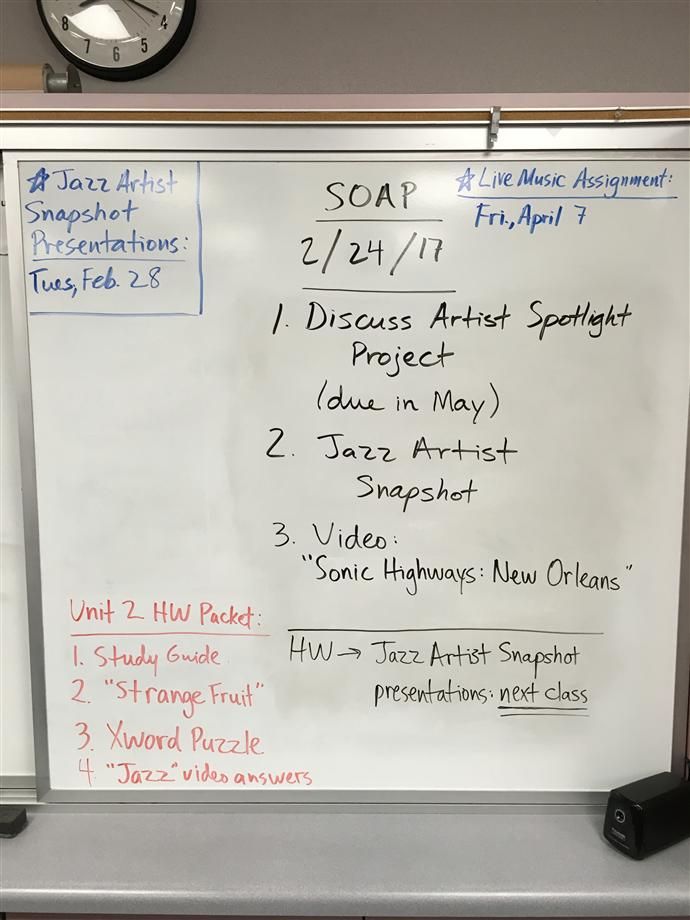 8 7 6 5 4
☆ Jazz Artist
Snapshot
Presentations:
Tues, Feb. 28
SOAP
2/24/17
☆ Live Music Assignment:
Fri., April 7
1. Discuss Artist Spotlight
Project
(due in May)
2. Jazz Artist
Snapshot
3. Video:
"Sonic Highways: New Orleans"
HW → Jazz Artist Snapshot
presentations: next class
Unit 2 HW Packet:
1. Study Guide
2. "Strange Fruit"
3. Xword Puzzle
4. "Jazz" video answers